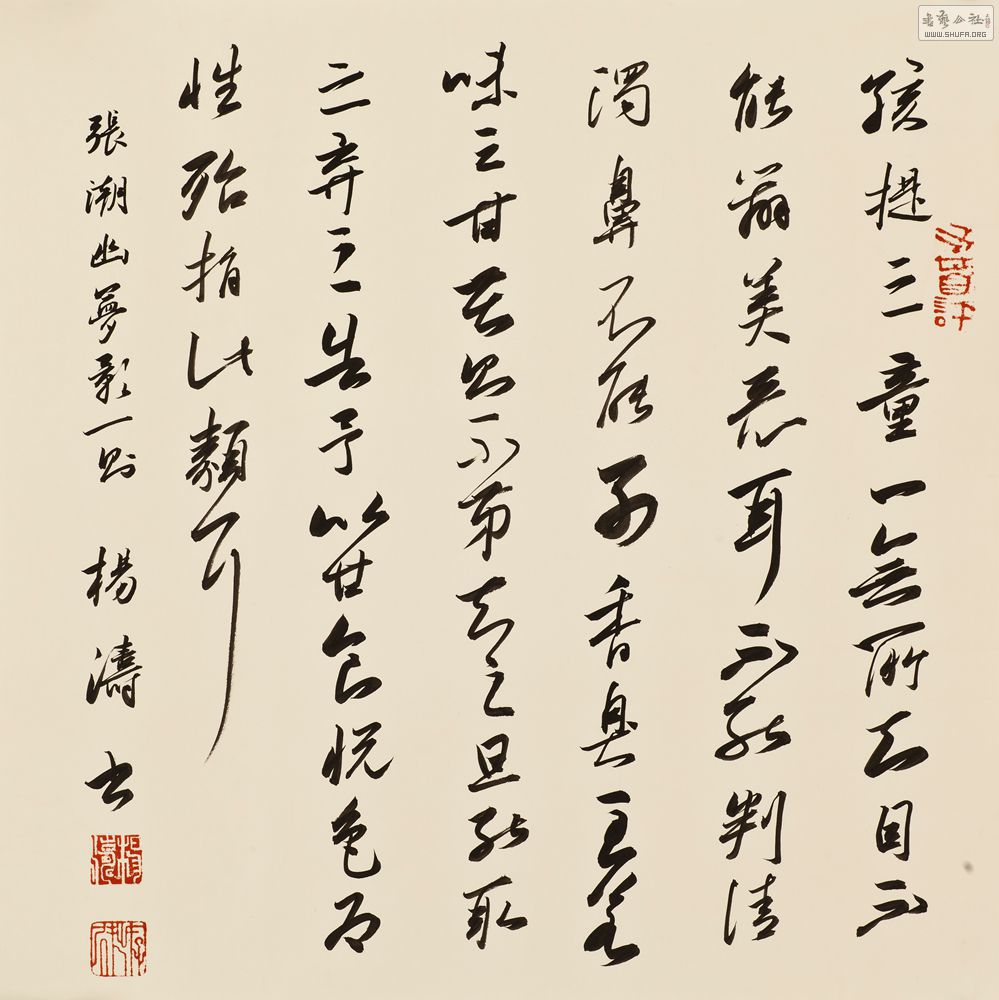 孩提之童一無所知目不
能辨美惡耳不能判清
濁鼻不能別香臭至若
味之甘苦則不第知之且能取
之棄之告子以甘食悅色為
性殆指此類耳
張潮幽夢影一則 楊濤書
書藝公社
WWW.SHUFA.ORG